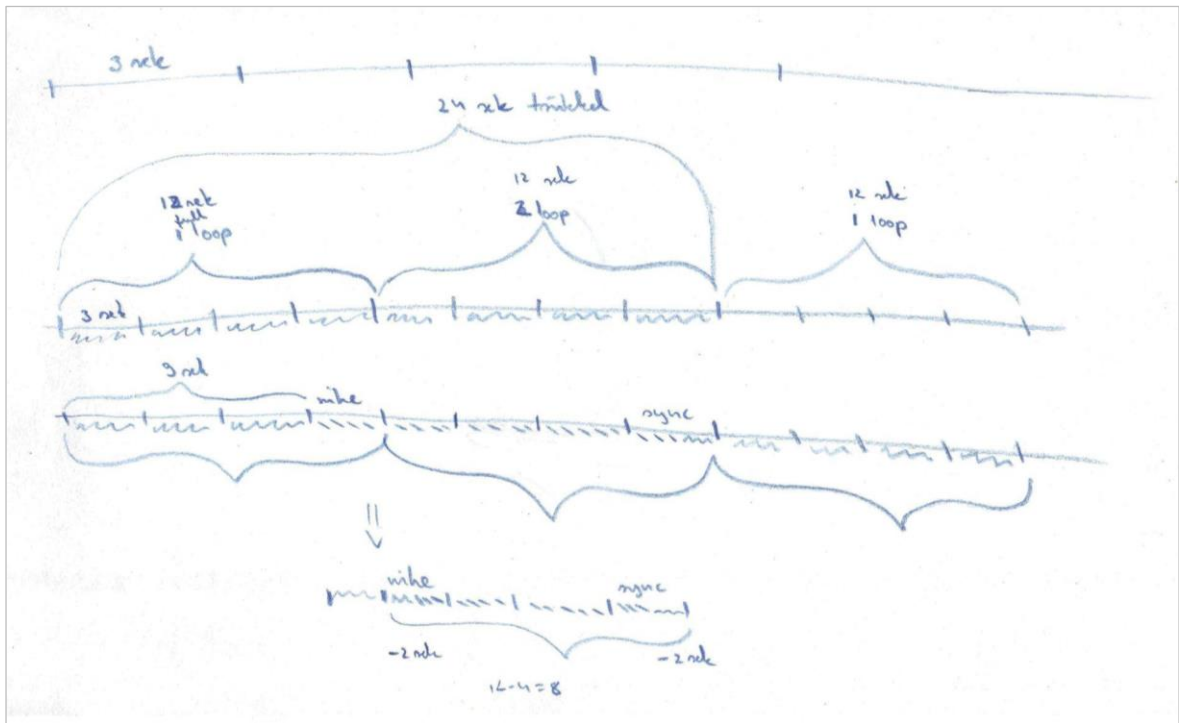 3 sek
24 sek tsükkel
12 sek
full
1 loop
12 sek
2 loop
12 sek
1 loop
3 sek
9 sek
nihe
sync
nihe
sync
-2 sek
-2 sek
12-4=8